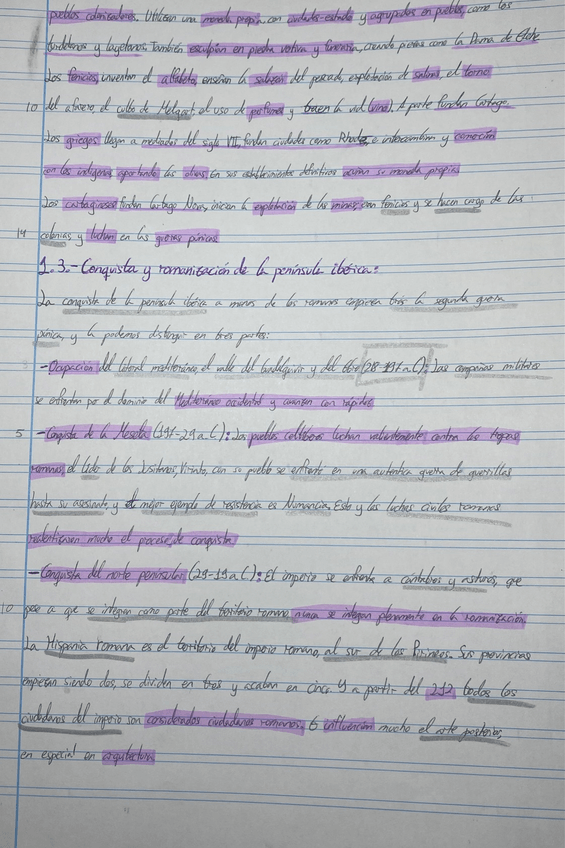 pueblos colonizadores. Utilizan una moneda propia, con ciudades-estado y agrupados en pueblos, como los
turdetanos y layetanos. También esculpían en piedra votiva y funeraria, creando piezas como la Dama de Elche
Los fenicios inventan el alfabeto, enseñan la salazón del pescado, explotación de salinas, el torno
10 del alfarero, el culto de Melqart, el uso de perfumes y traen la vid (vino). A parte fundan Cartago.
Los griegos llegan a mediados del siglo VII, fundan ciudades como Rhode, e intercambian y comercian
con los indígenas aportando los olivos. En sus establecimientos definitivos acuñan su moneda propia
Los cartagineses fundan Cartago Nova, inician la explotación de las minas, con fenicios y se hacen cargo de las
14 colonias y luchan en las guerras púnicas
1.3.- Conquista y romanización de la península ibérica:
La conquista de la península ibérica a manos de los romanos empieza tras la segunda guerra
púnica, y la podemos distinguir en tres partes:
- Ocupación del litoral mediterráneo, el valle del Guadalquivir y del Ebro (218-197 a.C): Las campañas militares
se enfrentan por el dominio del Mediterráneo occidental y avanzan con rapidez
5 - Conquista de la Meseta (197-29 a.C): Los pueblos celtíberos luchan valientemente contra las tropas
romanas, el líder de los lusitanos, Viriato, con su pueblo se enfrenta en una auténtica guerra de guerrillas
hasta su asesinato, y el mejor ejemplo de resistencia es Numancia. Esto y las luchas civiles romanas
ralentizan mucho el proceso de conquista
- Conquista del norte peninsular (29-19 a.C): El imperio se enfrenta a cántabros y astures, que
10 pese a que se integran como parte del territorio romano, nunca se integran plenamente en la romanización.
La Hispania romana es el territorio del imperio romano, al sur de los Pirineos. Sus provincias
empiezan siendo dos, se dividen en tres y acaban en cinco. Y a partir del 212 todos los
ciudadanos del imperio son considerados ciudadanos romanos. E influencian mucho el arte posterior,
en especial en arquitectura